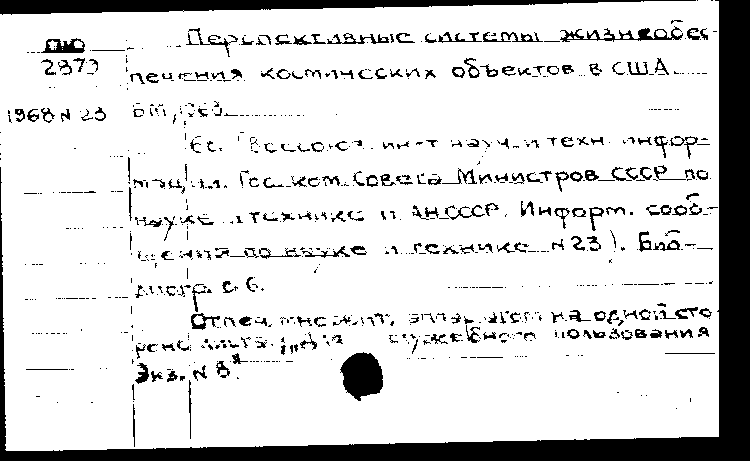 Перспективные системы жизнеобес-
2873 печения космических объектов в США
1968 N 23 БМ, 1968.
6с. (Всесоюз. ин-т науч. и техн. инфор-
мации. Гос. ком. Совета Министров СССР по
науке и технике и АН СССР. Информ. сооб-
щения по науке и технике N 23). Биб-
лиогр. с 6.
Отпеч. множит. аппаратом на одной сто-
роне листа. „Для служебного пользования
Экз. N 8"